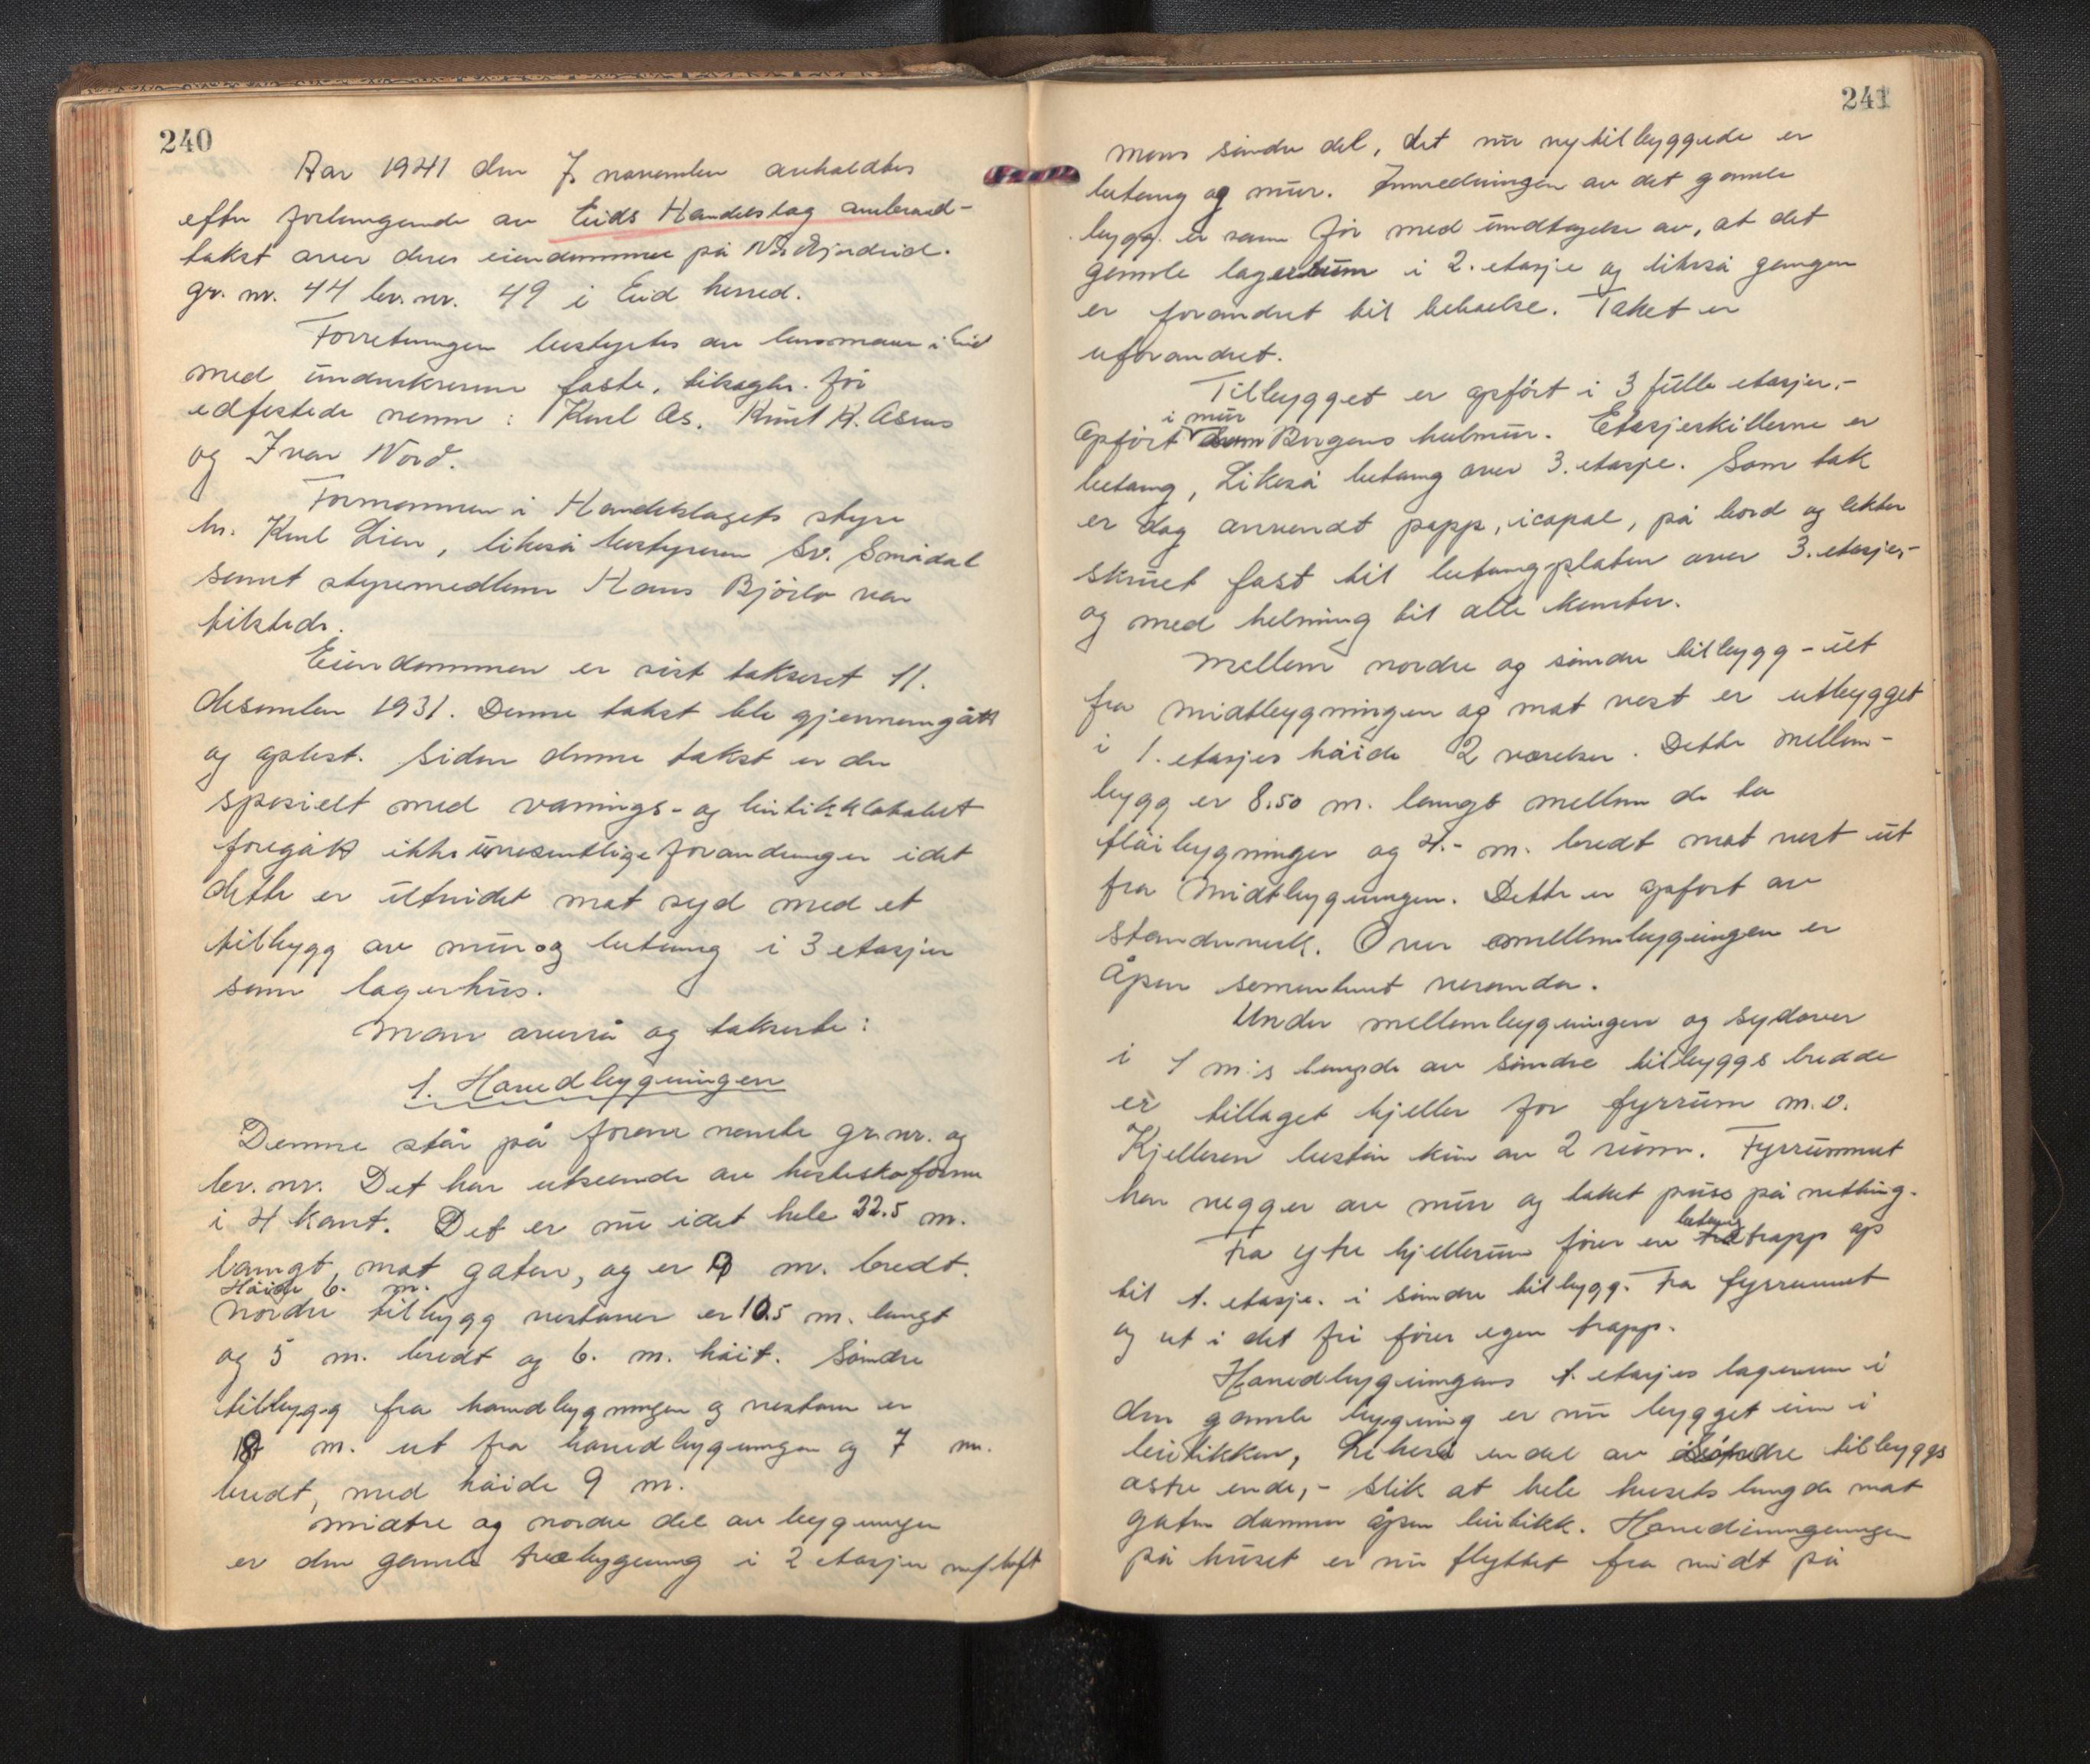 240
Aar 1941 den 7. november avholdtes
efter forlangende av Eids Handelslag
takst over deres eiendommer på Nordfjordeid.
gr. nr. 44 br. nr. 49 i Eid herred.
Forretningen bestyrtes av lensmann i Eid
med underskrevne faste, tilkagte. før
edfestede menn: Karl Os. Knut K.
og Ivar Nord.
Formannen i Handelslagets styre
hr. Karl Lien, likeså bestyreren Sv. Smådal
samt styremedlem Hans Bjørlo var
tilstede.
Eiendommen er sist taksert 11.
desember 1931. Denne takst ble gjennemgått
og oplest. Siden denne takst er der
spesielt med vånings- og butikklokalet
foregått ikke uvesentlige forandringer idet
dette er utvidet mot syd med et
tilbygg av mur og betong i 3 etasjer
som lagerhus.
Man overså og takserte:
1. Hovedbygningen
Denne står på foran nevnte gr. nr. og
br. nr. Det har utseende av hesteskoform
i 4 kant. Det er nu idet hele 22.5 m.
langt mot gaten, og er 9 m. bredt.
Høide 6. m.
Nordre tilbygg vestover er 10.5 m. langt
og 5 m. bredt og 6. m. høit. Søndre
tilbygg fra hovedbygningen og vestover er
18 m. ut fra hovedbygningen og 7 m.
bredt, med høide 9 m.
Midtre og nordre del av bygningen
er den gamle trebygning i 2 etasjer m/loft
241
mens søndre del, det nu nytilbyggede er
betong og mur. Innredningen av det gamle
bygg. er som før med undtagelse av, at det
gamle lagerrum i 2. etasje og likeså gangen
er forandret til beboelse. Taket er
uforandret.
Tilbygget er opført i 3 fulle etasjer.-
i mur
Opført Bergens hulmur. Etasjeskillerne er
betong, Likeså betong over 3. etasje. Som tak
er dog anvendt papp, icopal, på bord og lekter
skruet fast til betongplaten over 3. etasje,-
og med helning til alle kanter.
Mellem nordre og søndre tilbygg - ut
fra midtbygningen og mot vest er utbygget
i 1. etasjes høide 2 værelser. Dette mellem-
bygg er 8.50 m. langt mellem de to
fløibygninger og 4.- m. bredt mot vest ut
fra midtbygningen. Dette er opført av
standerverk. Over mellembygningen er
åpen sementert veranda.
Under mellembygningen og sydover
i 1 m:s lengde av søndre tilbyggs bredde
er tillaget kjeller for fyrrum m.v.
Kjelleren består kun av 2 rum. Fyrrummet
har vegger av mur og taket puss på netting.
betong
Fra ytre kjellerum fører en trapp op
til 1. etasje. i søndre tilbygg. Fra fyrrummet
og ut i det fri fører egen trapp.
Hovedbygningens 1. etasjes lagerrum i
den gamle bygning er nu bygget inn i
butikken, Likeså endel av søndre tilbyggs
østre ende,- slik at hele husets lengde mot
gaten danner åpen butikk. Hovedinngangen
på huset er nu flyttet fra midt på